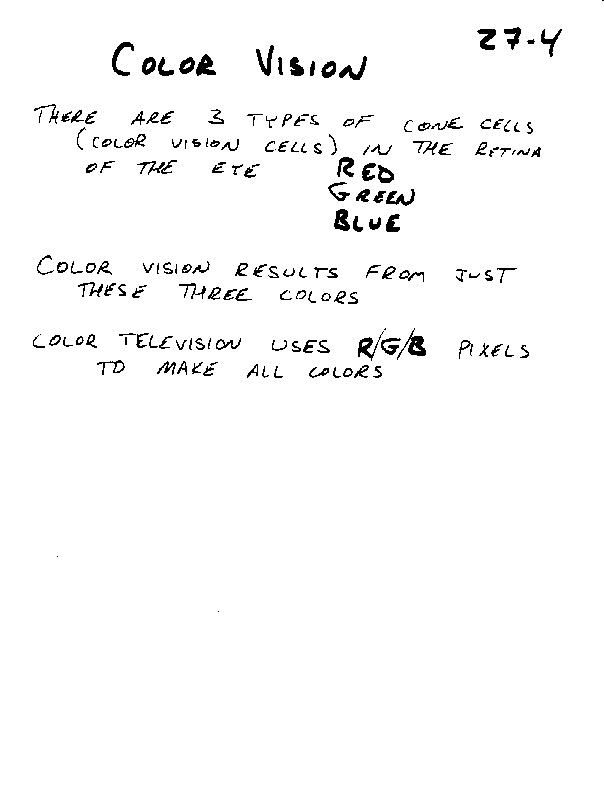 27-4
COLOR VISION
THERE ARE 3 TYPES OF CONE CELLS
(COLOR VISION CELLS) IN THE RETINA
OF THE EYE RED
GREEN
BLUE
COLOR VISION RESULTS FROM JUST
THESE THREE COLORS
COLOR TELEVISION USES R/G/B PIXELS
TO MAKE ALL COLORS